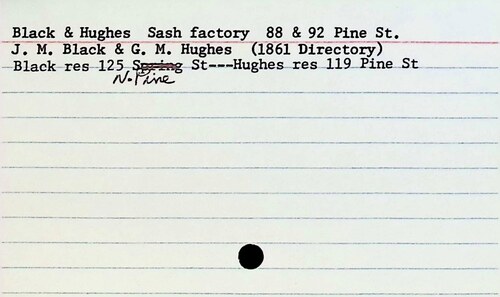 Black & Hughes  Sash factory  88 & 92 Pine St.
J. M. Black & G. M. Hughes  (1861 Directory)
Black res 125 Spring St---Hughes res 119 Pine St
N. Pine